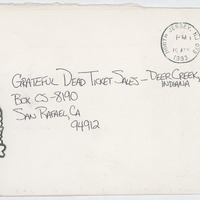 NORTH JERSEY, NJ 070
PM
1993
GRATEFUL DEAD TICKET SALES – DEER CREEK,
INDIANA
BOX CS-8190
SAN RAFAEL, CA
94912